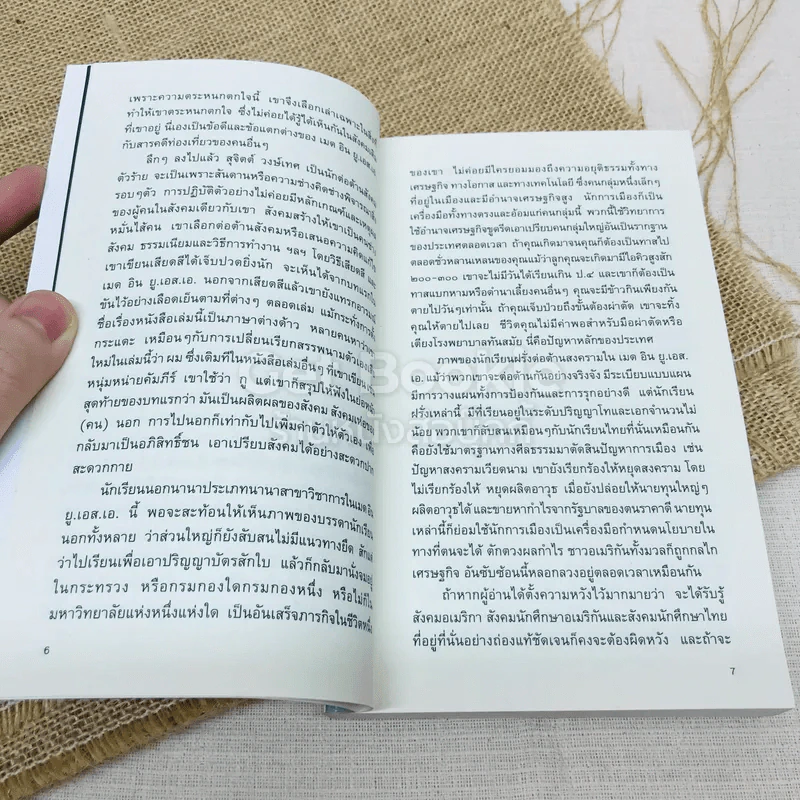 เพราะความตระหนกตกใจนี้ เขาจึงเลือกเล่าเฉพาะในสิ่งที่
ทำให้เขาตระหนกตกใจ ซึ่งไม่ค่อยได้รู้ได้เห็นกันในสังคม
ที่เขาอยู่ นี่เองเป็นข้อดีและข้อแตกต่างของ เมด อิน ยู.เอส.
กับสารคดีท่องเที่ยวของคนอื่นๆ
ลึกๆ ลงไปแล้ว สุจิตต์ วงษ์เทศ เป็นนักต่อต้านสังคม
ตัวร้าย จะเป็นเพราะสันดานหรือความช่างคิดช่างพิจารณา
รอบๆตัว การปฏิบัติตัวอย่างไม่ค่อยมีหลักเกณฑ์และเหตุผล
ของผู้คนในสังคมเดียวกับเขา สังคมสร้างให้เขาเป็นคน
หมั่นไส้คน เขาเลือกต่อต้านสังคมหรือเสนอความคิดแก้ไข
สังคม ธรรมเนียมและวิธีการทำงาน ฯลฯ โดยวิธีเสียดสี
เขาเขียนเสียดสีได้เจ็บปวดยิ่งนัก จะเห็นได้จากบท
เมด อิน ยู.เอส.เอ. นอกจากเสียดสีแล้วเขายังแทรกอารมณ์
ขันไว้อย่างเลือดเย็นตามที่ต่างๆ ตลอดเล่ม แม้กระทั่งการตั้ง
ชื่อเรื่องหนังสือเล่มนี้เป็นภาษาต่างด้าว หลายคนหาว่า
กระแดะ เหมือนๆกับการเปลี่ยนเรียกสรรพนามตัวเอง
ใหม่ในเล่มนี้ว่า ผม ซึ่งเดิมทีในหนังสือเล่มอื่นๆที่เขาเขียน
หนุ่มหน่ายคัมภีร์ เขาใช้ว่า กู แต่เขาก็สรุปให้ฟังในย่อหน้า
สุดท้ายของบทแรกว่า มันเป็นผลิตผลของสังคม สังคมเห่อของ
(คน) นอก การไปนอกก็เท่ากับไปเพิ่มค่าตัวให้ตัวเอง เพื่อ
กลับมาเป็นอภิสิทธิ์ชน เอาเปรียบสังคมได้อย่างสะดวกปาก
สะดวกกาย
นักเรียนนอกนานาประเภทนานาสาขาวิชาการในเมด อิน
ยู.เอส.เอ. นี้ พอจะสะท้อนให้เห็นภาพของบรรดานักเรียน
นอกทั้งหลาย ว่าส่วนใหญ่ก็ยังสับสนไม่มีแนวทางยึด สักแต่
ว่าไปเรียนเพื่อเอาปริญญาบัตรสักใบ แล้วก็กลับมานั่งจมอยู่
ในกระทรวง หรือกรมกองใดกรมกองหนึ่ง หรือไม่ก็ใน
มหาวิทยาลัยแห่งหนึ่งแห่งใด เป็นอันเสร็จภารกิจในชีวิตหนึ่ง
6
ของเขา ไม่ค่อยมีใครยอมมองถึงความอยุติธรรมทั้งทาง
เศรษฐกิจ ทางโอกาส และทางเทคโนโลยี ซึ่งคนกลุ่มหนึ่งเล็กๆ
ที่อยู่ในเมืองและมีอำนาจเศรษฐกิจสูง นักการเมืองก็เป็น
เครื่องมือทั้งทางตรงและอ้อมแก่คนกลุ่มนี้ พวกนี้ใช้วิทยาการ
ใช้อำนาจเศรษฐกิจขูดรีดเอาเปรียบคนกลุ่มใหญ่อันเป็นรากฐาน
ของประเทศตลอดเวลา ถ้าคุณเกิดมาจนคุณก็ต้องเป็นทาสไป
ตลอดชั่วหลานเหลนของคุณแม้ว่าลูกคุณจะเกิดมามีไอคิวสูงสัก
๒๐๐-๓๐๐ เขาจะไม่มีวันได้เรียนเกิน ป.๔ และเขาก็ต้องเป็น
ทาสแบกหามหรือดำนาเลี้ยงคนอื่นๆ คุณจะมีข้าวกินเพียงกัน
ตายไปวันๆเท่านั้น ถ้าคุณเจ็บป่วยถึงขั้นต้องผ่าตัด เขาจะทิ้ง
คุณให้ตายไปเลย ชีวิตคุณไม่มีค่าพอสำหรับมือผ่าตัดหรือ
เตียงโรงพยาบาลทันสมัย นี่คือปัญหาหลักของประเทศ
ภาพของนักเรียนฝรั่งต่อต้านสงครามใน เมด อิน ยู.เอส.
เอ. แม้ว่าพวกเขาจะต่อต้านกันอย่างจริงจัง มีระเบียบแบบแผน
มีการวางแผนทั้งการป้องกันและการรุกอย่างดี แต่นักเรียน
ฝรั่งเหล่านี้ มีที่เรียนอยู่ในระดับปริญญาโทและเอกจำนวนไม่
น้อย พวกเขาก็สับสนเหมือนๆกับนักเรียนไทยที่นั่นเหมือนกัน
คือยังใช้มาตรฐานทางศีลธรรมมาตัดสินปัญหาการเมือง เช่น
ปัญหาสงครามเวียดนาม เขายังเรียกร้องให้หยุดสงคราม โดย
ไม่เรียกร้องให้ หยุดผลิตอาวุธ เมื่อยังปล่อยให้นายทุนใหญ่ๆ
ผลิตอาวุธได้ และขายหากำไรจากรัฐบาลของตนราคาดี นายทุน
เหล่านี้ก็ย่อมใช้นักการเมืองเป็นเครื่องมือกำหนดนโยบายใน
ทางที่ตนจะได้ ตักตวงผลกำไร ชาวอเมริกันทั้งมวลก็ถูกกลไก
เศรษฐกิจ อันซับซ้อนนี้หลอกลวงอยู่ตลอดเวลาเหมือนกัน
ถ้าหากผู้อ่านได้ตั้งความหวังไว้มากมายว่า จะได้รับรู้
สังคมอเมริกา สังคมนักศึกษาอเมริกันและสังคมนักศึกษาไทย
ที่อยู่ที่นั่นอย่างถ่องแท้ชัดเจนก็คงจะต้องผิดหวัง และถ้าจะ
7